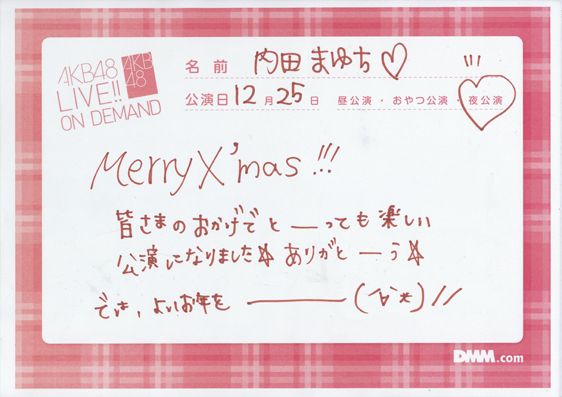 AKB48
LIVE!!
ON DEMAND
AKB
48
名前 内田まゆち♡
公演日 12月25日 昼公演・おやつ公演・夜公演
Merry X'mas!!!
皆さまのおかげでと―っても楽しい
公演になりました☆ ありがと―う☆
では、よいお年を ―――
DMM.com